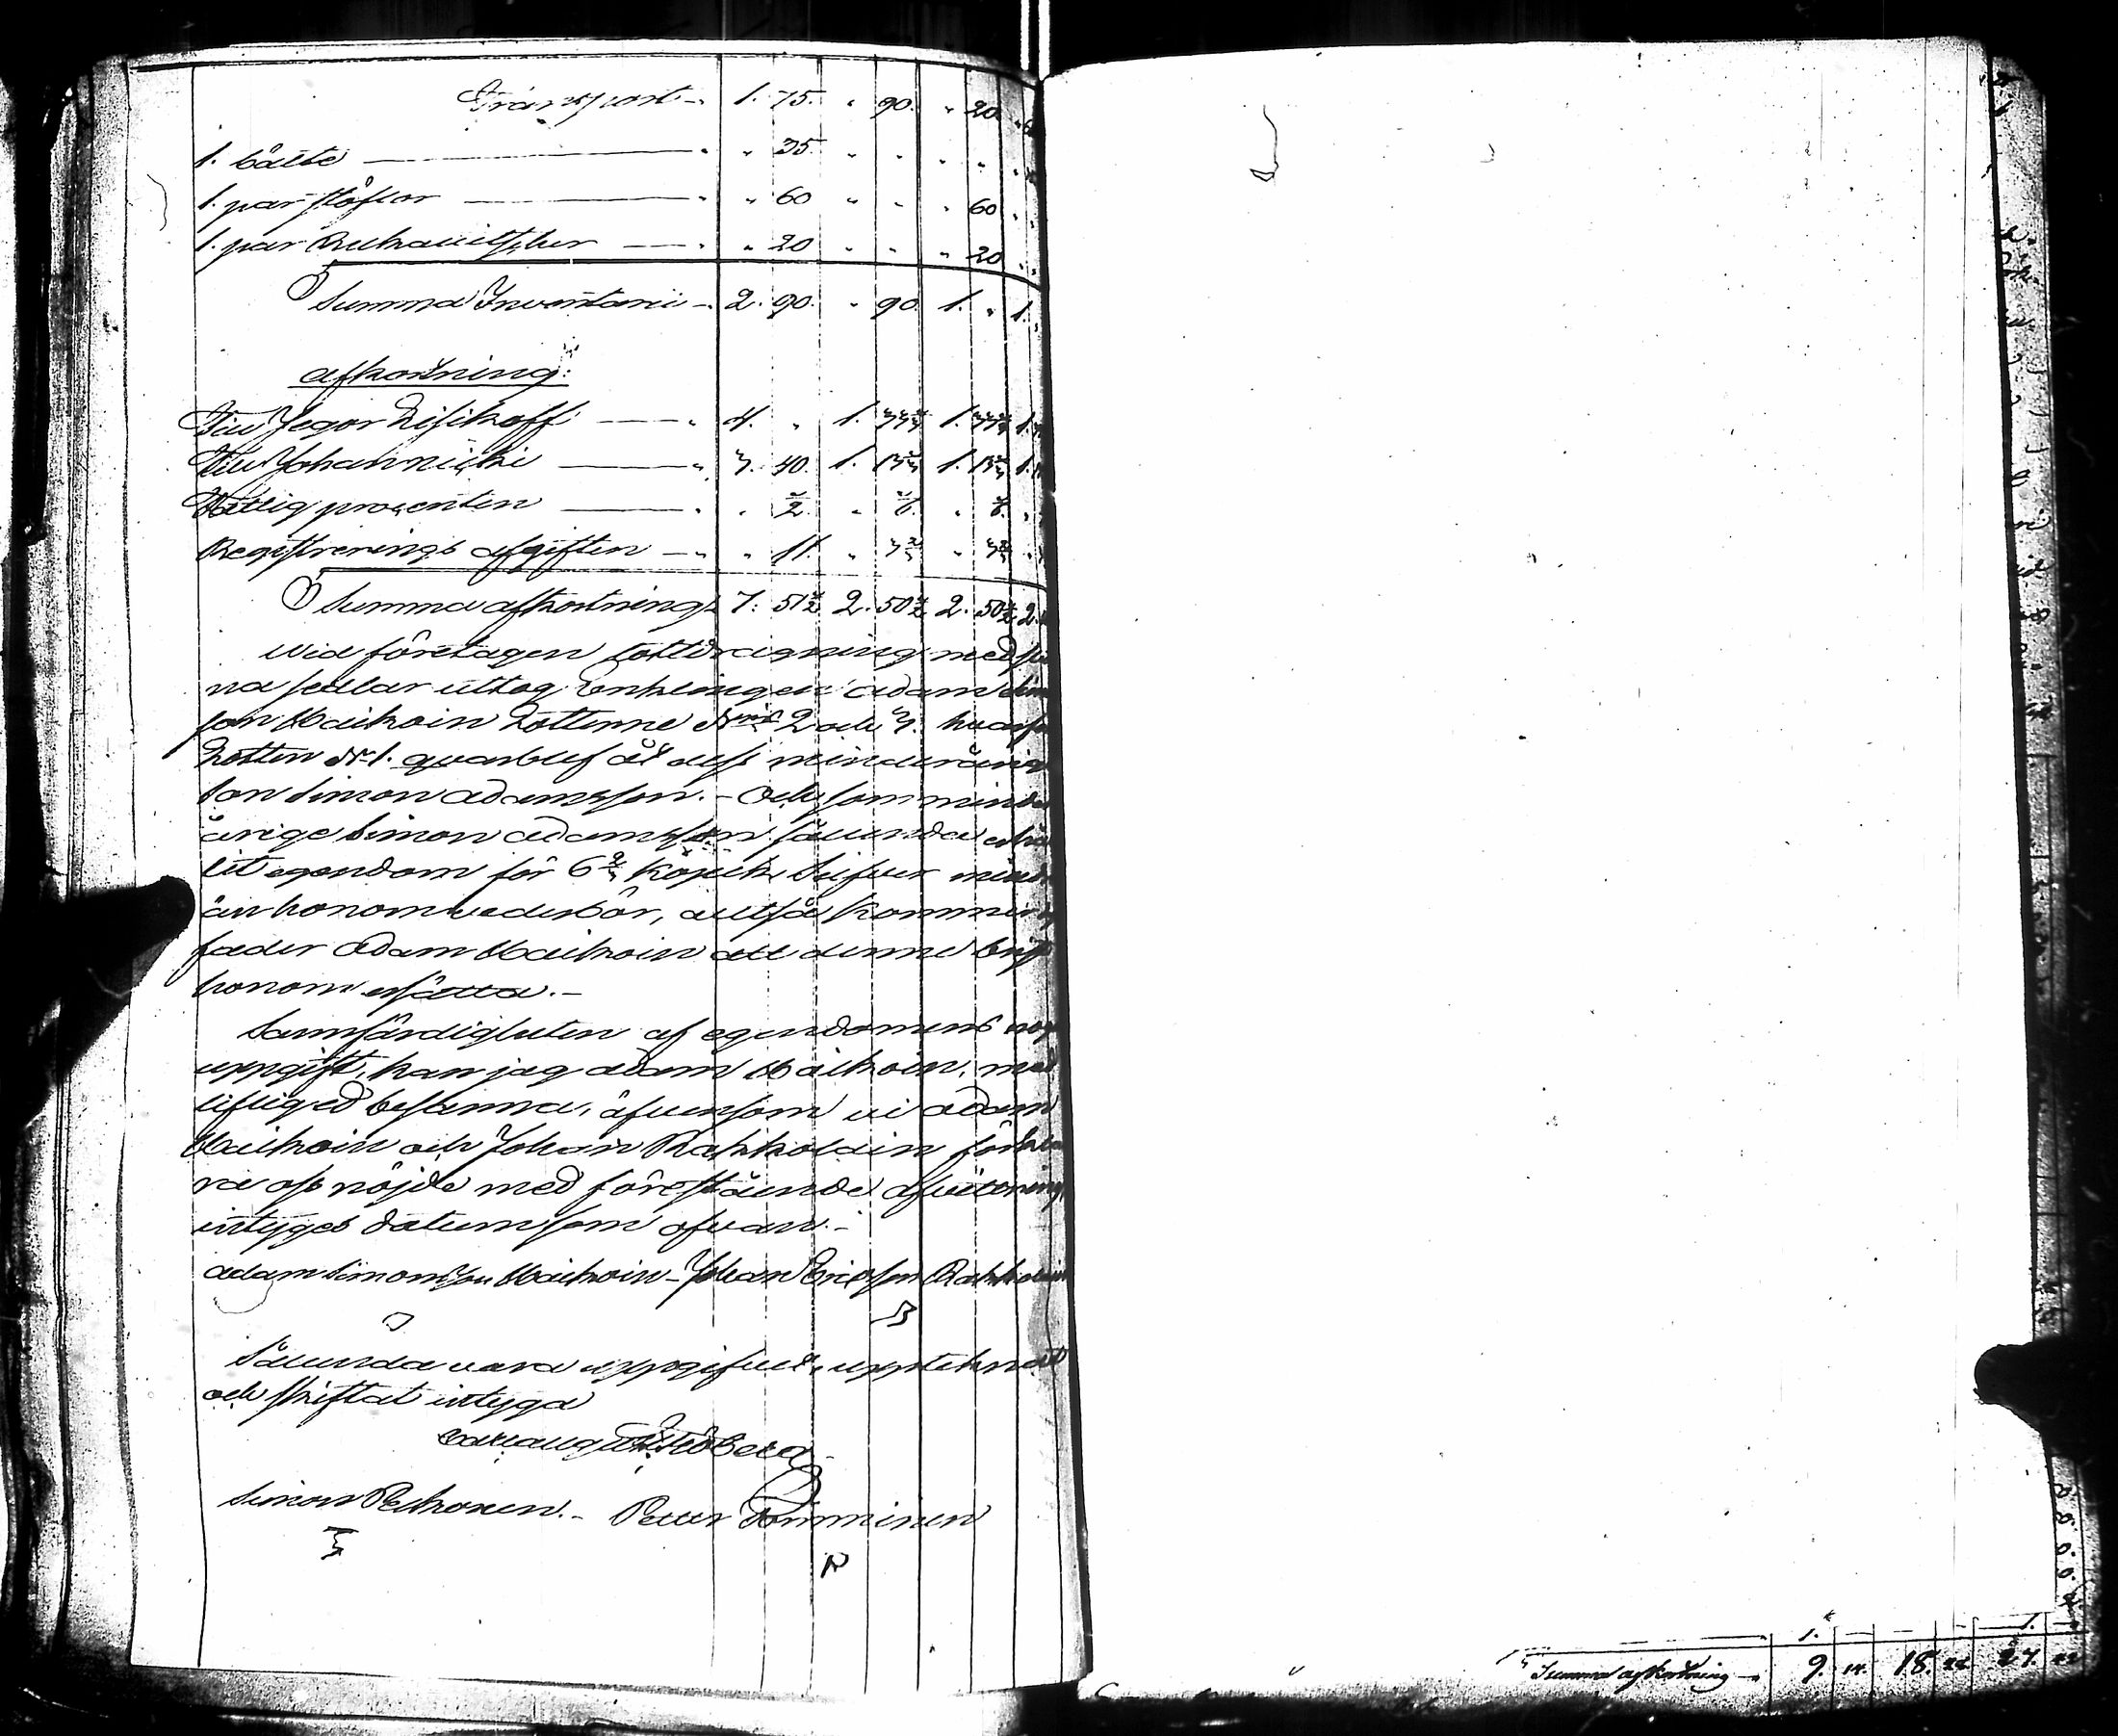 Transport - 1. 75. " 90. " 20.
1. bälte - " 35. " " " "
1. par stöflor - " 60 " " " 60
1. par Rukauitsher - " 20 " " " 20
Summa Inventarii - 2. 90. " 90. 1. " 1.
afkortning:
Till Jegor Lisikoff - 4. " 1. 33 1/3 1. 33 1/3 1.
Till Johan - 3. 40. 1. 13 1/3 1. 13 1/3 1.
Fattig procenten - " "
Registrerings afgiften - " 11. " 3 2/3 " 3 2/3
Summa afkortning 7. 51 1/2 2. 50 1/2 2. 50 1/2 2.
Wid företagen lottdragning med
na sedlar uttog Enklingen Adam Sim
son Maikoin Lotterne N:ris 2 och 3. hvar
Lotten N:o 1. qvarblef åt dess minderårig
son Simon Adamsson. - Och som minder
årige Simon Adamsson sålunda erhål
lit egendom för 6 2/3 Kopek Silfver mindr
än honom vederbör, altså kommer
fader Adam Maikoin att denne brist
honom ersätta. -
Sannfärdigheten af egendomens
uppgift, kan jag Adam Maikoin, med
liflig ed besanna, äfvensom vi Adam
Maikoin och Johan Rahkolain förkla
ra oss nöjde med förestående afvittring,
intyges datum som ofvan. -
Adam Simonsson Maikoin - Johan Ericsson Rahkolain
Sålunda vara uppgifvet, upptecknat
och skiftat intyga
Carl August
Simon Pelkonen. - Petter Tomminen
1. 1.
Summa afkortning - 9. 14. 18. 22 27. 22